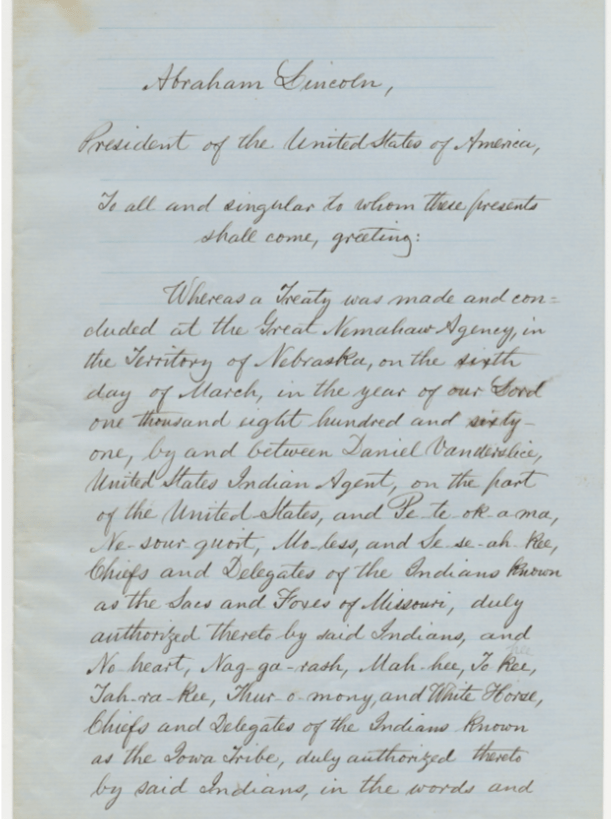 Abraham Lincoln,
President of the United States of America,
To all and singular to whom these presents
shall come, greeting:
Whereas a Treaty was made and con=
cluded at the Great Nemahaw Agency, in
the Territory of Nebraska, on the sixth
day of March, in the year of our Lord
one thousand eight hundred and sixty-
one, by and between Daniel Vanderslice,
United States Indian Agent, on the part
of the United States, and Pe-te-ok-a-ma,
Ne-sour-quoit, Mo-less, and Se-se-ah-kee,
Chiefs and Delegates of the Indians known
as the Sacs and Foxes of Missouri, duly
authorized thereto by said Indians, and
No-heart, Nag-ga-rash, Mah-hee, To-kee,
Tah-ra-kee, Thur-o-mony, and White Horse,
Chiefs and Delegates of the Indians known
as the Iowa Tribe, duly authorized thereto
by said Indians, in the words and